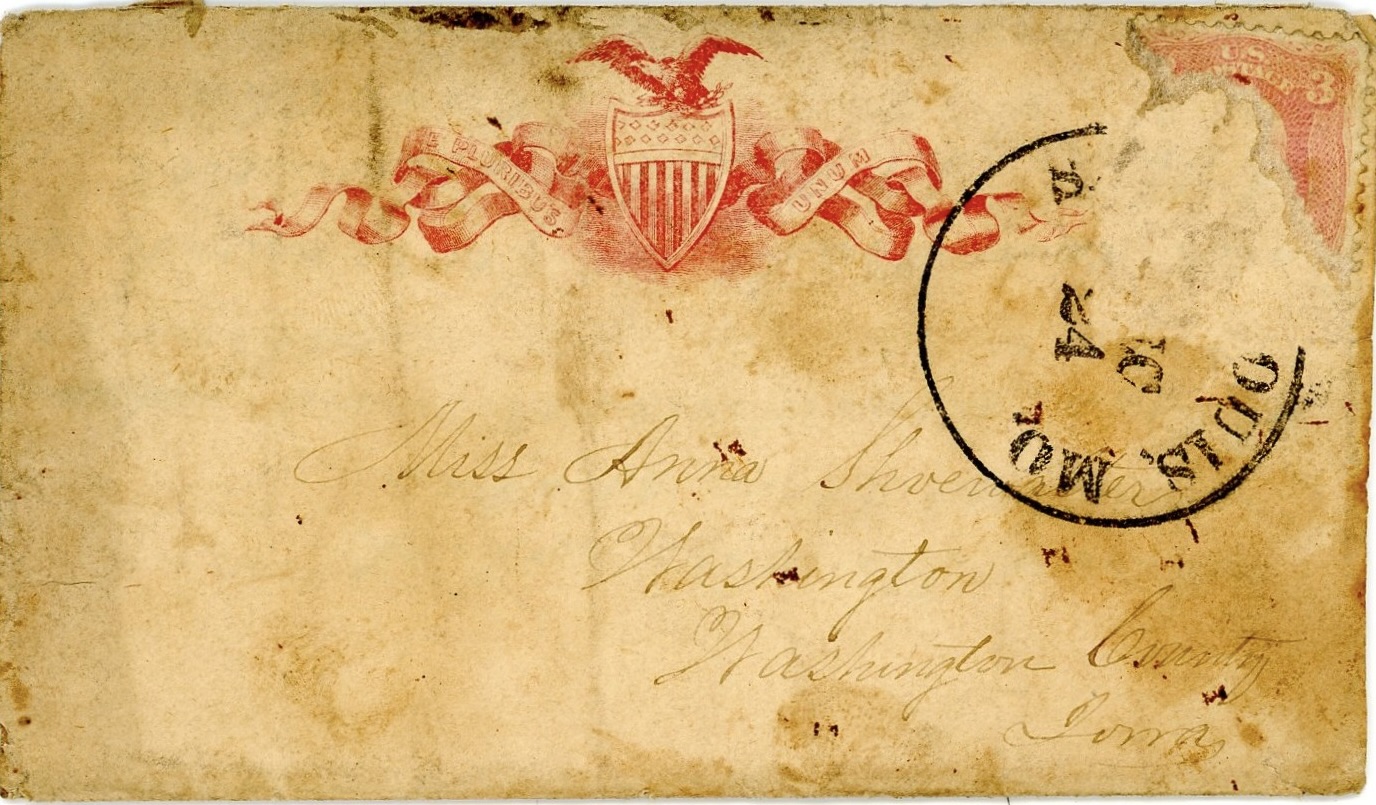 U.S. POSTAGE 3
E PLURIBUS UNUM
24
OUIS, MO
Miss Anna Shoemaker
Washington
Washington County
Iowa